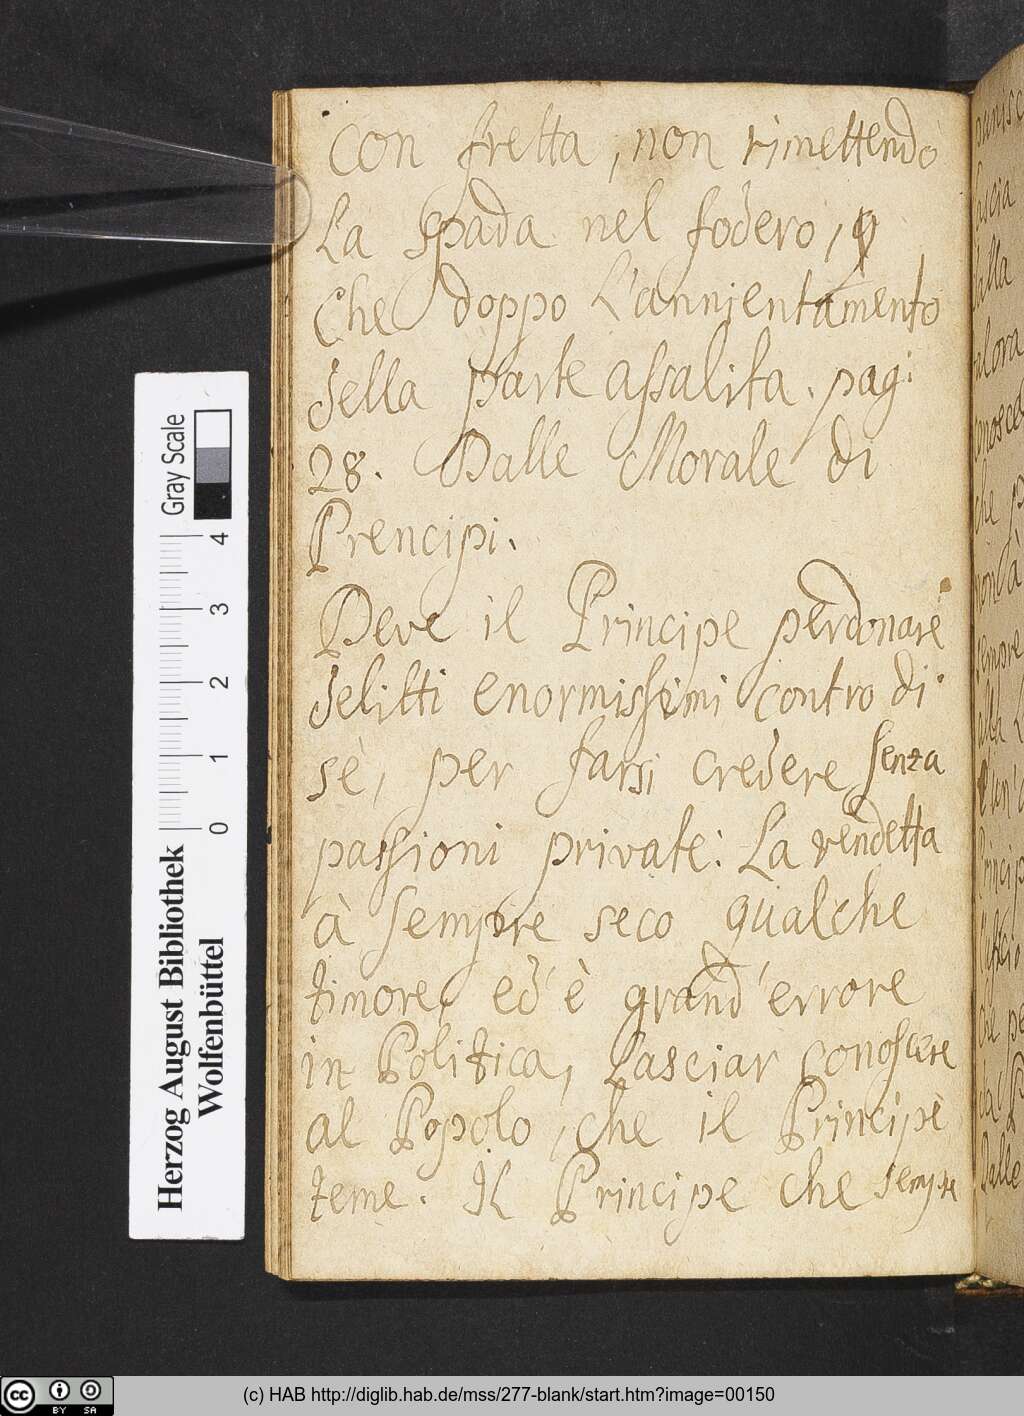 con fretta, non rimettendo
La spada nel fodero,
Che doppo L'annientamento
della parte assalita. pag:
28. Dalle Morale di
Prencipi.
Deve il Principe perdonare
delitti enormissimi contro di
sè, per farsi credere senza
passioni private: La vendetta
à sempre seco qualche
timore, ed' è grand' errore
in Politica, Lasciar conoscere
al Popolo, che il Principe
teme. Il Principe che sempre
Gray Scale
0 1 2 3 4
Herzog August Bibliothek
Wolfenbüttel
cc BY SA
(c) HAB http://diglib.hab.de/mss/277-blank/start.htm?image=00150